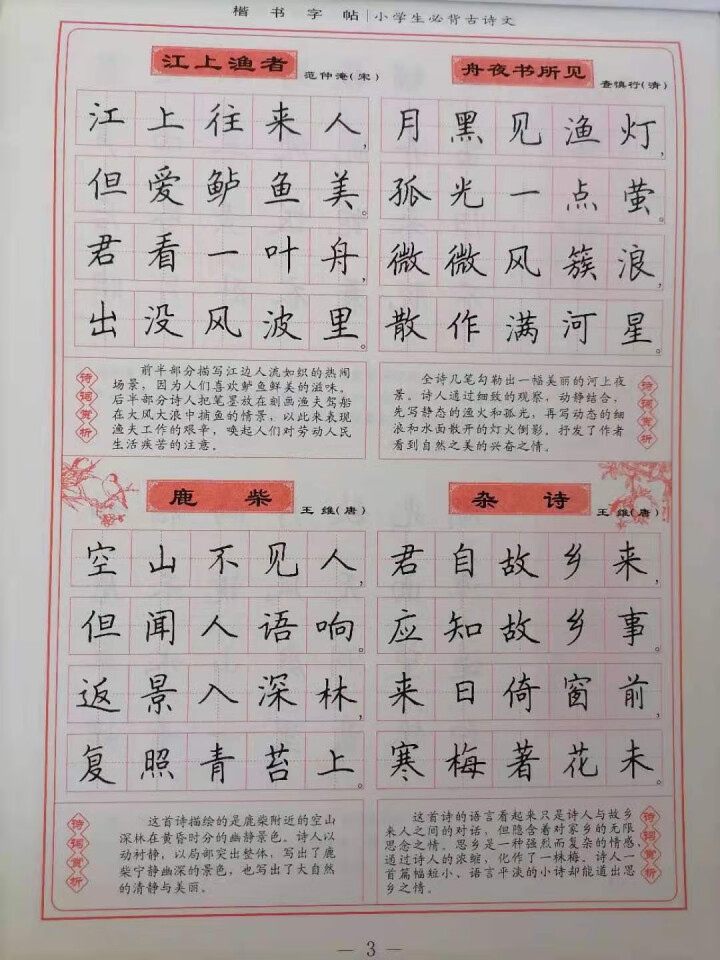 楷书字帖|小学生必背古诗文
江上渔者
范仲淹(宋)
江上往来人,
但爱鲈鱼美。
君看一叶舟,
出没风波里。
诗词赏析
前半部分描写江边人流如织的热闹
场景,因为人们喜欢鲈鱼鲜美的滋味。
后半部分诗人把笔墨放在刻画渔夫驾船
在大风大浪中捕鱼的情景,以此来表现
渔夫工作的艰辛,唤起人们对劳动人民
生活疾苦的注意。
舟夜书所见
查慎行(清)
月黑见渔灯,
孤光一点萤。
微微风簇浪,
散作满河星。
全诗几笔勾勒出一幅美丽的河上夜
景。诗人通过细致的观察,动静结合,
先写静态的渔火和孤光,再写动态的细
浪和水面散开的灯火倒影。抒发了作者
看到自然之美的兴奋之情。
诗词赏析
鹿柴
王维(唐)
空山不见人,
但闻人语响。
返景入深林,
复照青苔上。
诗词赏析
这首诗描绘的是鹿柴附近的空山
深林在黄昏时分的幽静景色。诗人以
动衬静,以局部突出整体,写出了鹿
柴宁静幽深的景色,也写出了大自然
的清静与美丽。
杂诗
王维(唐)
君自故乡来,
应知故乡事。
来日倚窗前,
寒梅著花未。
这首诗的语言看起来只是诗人与故乡
来人之间的对话,但隐含着对家乡的无限
思念之情。思乡是一种强烈而复杂的情感,
通过诗人的浓缩,化作了一株梅。诗人一
首篇幅短小、语言平淡的小诗却能道出思
乡之情。
诗词赏析
— 3 —